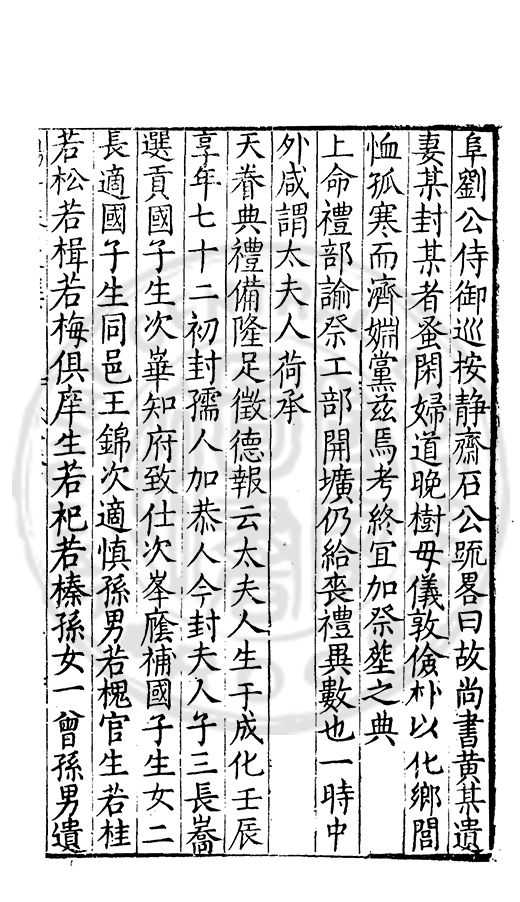 阜劉公侍御巡按靜齋石公䟽畧曰故尚書黃某遺
妻某封某者蚤閑婦道晚樹母儀敦儉朴以化鄉閭
恤孤寒而濟婣黨兹焉考終宜加祭塟之典
上命禮部諭祭工部開壙仍給喪禮異數也一時中
外咸謂太夫人荷承
天眷典禮備隆足徵德報云太夫人生于成化壬辰
享年七十二初封孺人加恭人今封夫人子三長嶅
選貢國子生次崋知府致仕次峯廕補國子生女二
長適國子生同邑王錦次適慎孫男若槐官生若桂
若松若楫若梅俱庠生若杞若榛孫女一曾孫男遺